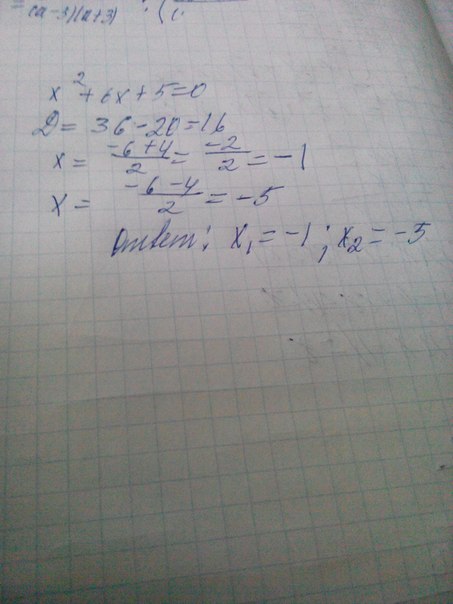 (a-3)(a+3)
x²+6x+5=0
D= 36-20=16
x= -6+4/2 = -2/2 = -1
x= -6-4/2 = -5
Ответ: x₁=-1; x₂=-5